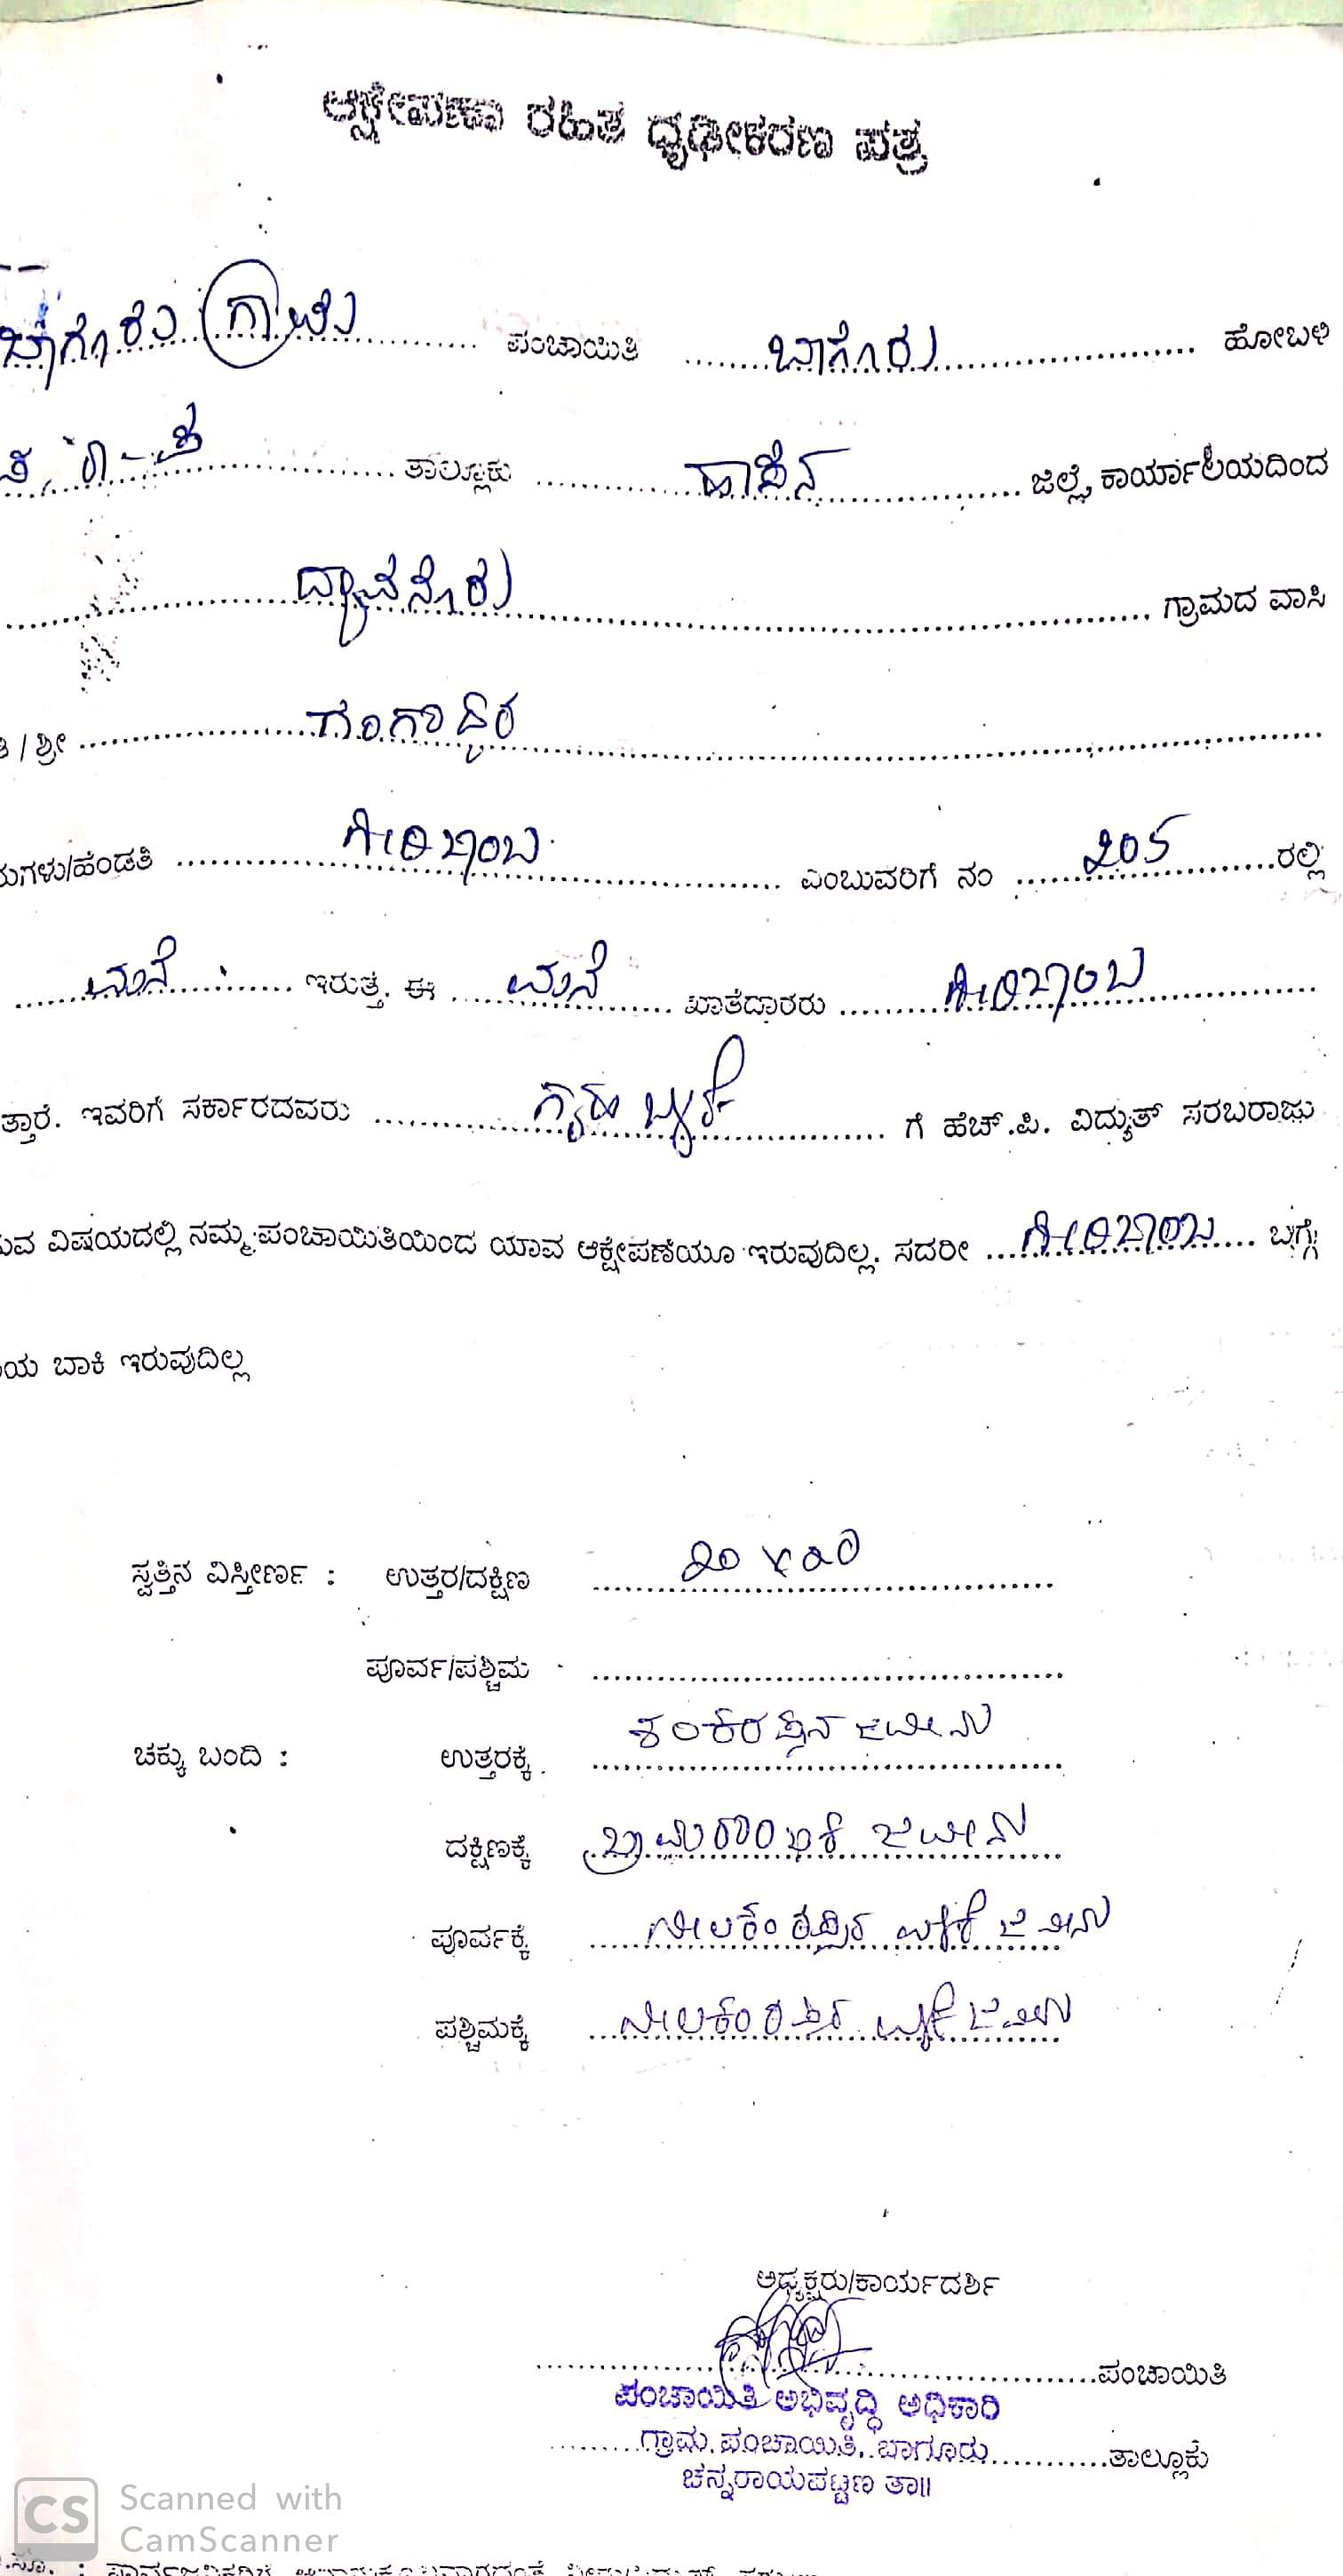 ಆಕ್ಷೇಪಣಾ ರಹಿತ ಧೃಢೀಕರಣ ಪತ್ರ
ಬಾಗೂರು ಗ್ರಾಮ ಪಂಚಾಯಿತಿ ಬಾಗೂರು ಹೋಬಳಿ
ಚ. ರಾ - ಪ ತಾಲ್ಲೂಕು ಹಾಸನ ಜಿಲ್ಲೆ, ಕಾರ್ಯಾಲಯದಿಂದ
ದ್ಯಾವನೂರು ಗ್ರಾಮದ ವಾಸಿ
ತಿ / ಶ್ರೀ ಗಂಗಾಧರ
ಮಗಳು/ಹೆಂಡತಿ ಗೌರಿಬಾಂಬ ಎಂಬುವರಿಗೆ ನಂ ೨೦೨ ರಲ್ಲಿ
ಮನೆ ಇರುತ್ತೆ. ಈ ಮನೆ ಖಾತೆದಾರರು
ತ್ತಾರೆ. ಇವರಿಗೆ ಸರ್ಕಾರದವರು ಗೃಹ ಬಳಕೆ ಗೆ ಹೆಚ್.ಪಿ. ವಿದ್ಯುತ್ ಸರಬರಾಜು
ುವ ವಿಷಯದಲ್ಲಿ ನಮ್ಮ ಪಂಚಾಯಿತಿಯಿಂದ ಯಾವ ಆಕ್ಷೇಪಣೆಯೂ ಇರುವುದಿಲ್ಲ. ಸದರೀ ಬಗ್ಗೆ
ಯ ಬಾಕಿ ಇರುವುದಿಲ್ಲ
ಸ್ವತ್ತಿನ ವಿಸ್ತೀರ್ಣ : ಉತ್ತರ/ದಕ್ಷಿಣ
ಪೂರ್ವ/ಪಶ್ಚಿಮ
ಚಕ್ಕು ಬಂದಿ : ಉತ್ತರಕ್ಕೆ ಶಂಕರಪ್ಪನ ಜಮೀನು
ದಕ್ಷಿಣಕ್ಕೆ ಜಮೀನು
ಪೂರ್ವಕ್ಕೆ ಜಮೀನು
ಪಶ್ಚಿಮಕ್ಕೆ ಜಮೀನು
ಅಧ್ಯಕ್ಷರು/ಕಾರ್ಯದರ್ಶಿ
ಪಂಚಾಯಿತಿ
ಪಂಚಾಯಿತಿ ಅಭಿವೃದ್ಧಿ ಅಧಿಕಾರಿ
ಗ್ರಾಮ ಪಂಚಾಯಿತಿ, ಬಾಗೂರು ತಾಲ್ಲೂಕು
ಚನ್ನರಾಯಪಟ್ಟಣ ತಾ॥
CS Scanned with
CamScanner